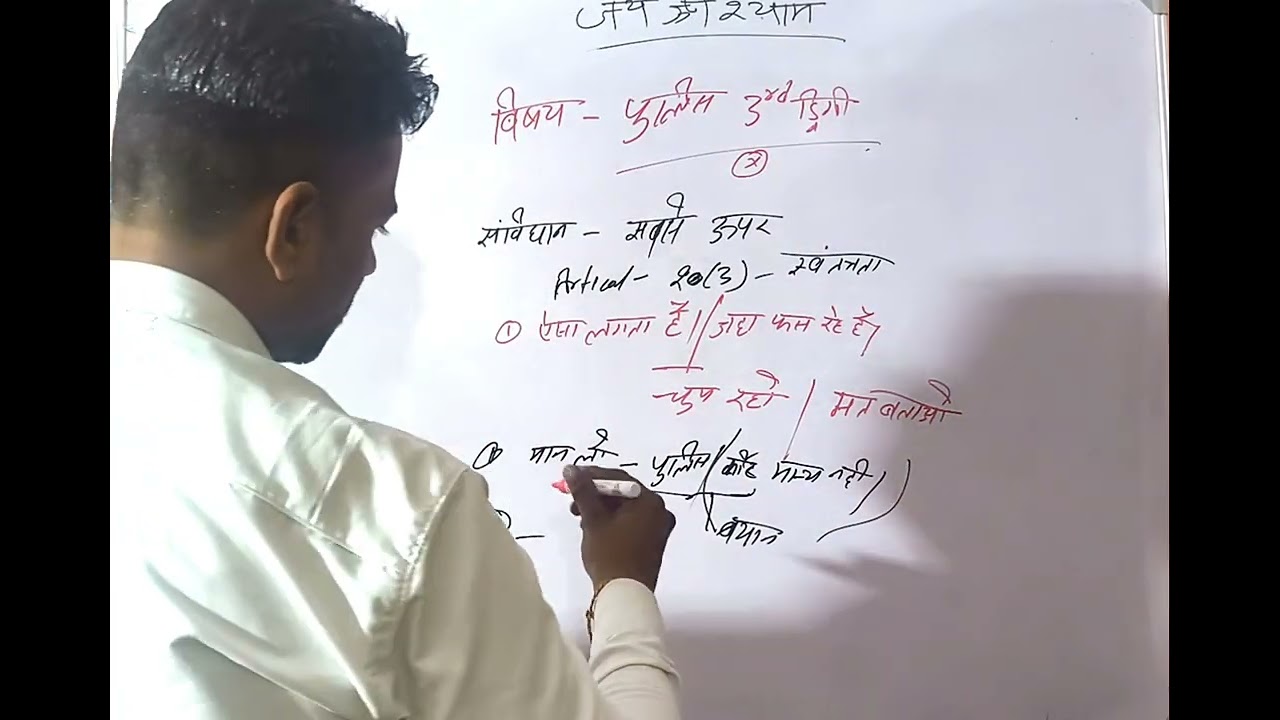 जय श्री श्याम
विषय - पुलिस 3rd डिग्री
संविधान - सबसे ऊपर
Artical - 20(3) - स्वतंत्रता
① ऐसा लगता है। / जहा फस रहे है।
चुप रहो / मत बताओ
मान लो - पुलिस / कोर्ट मान्य नही
बयान